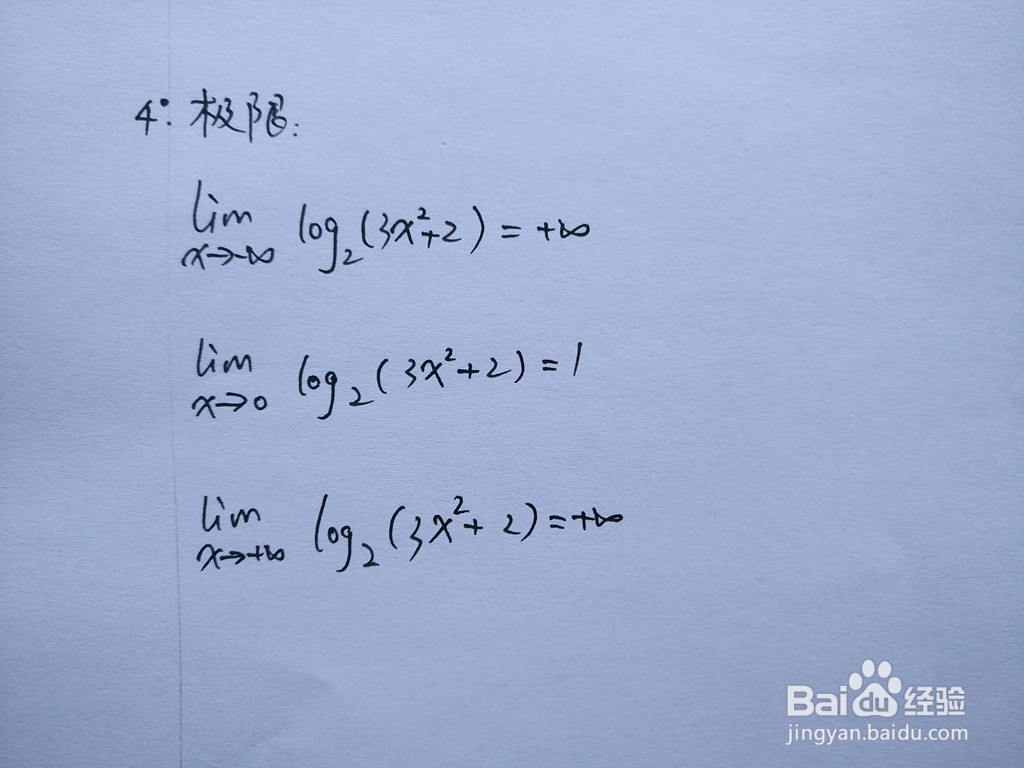 4°. 极限:
lim log₂(3x²+2) = +∞
x→-∞
lim log₂(3x²+2) = 1
x→0
lim log₂(3x²+2) = +∞
x→+∞
Bai du 经验
jingyan.baidu.com